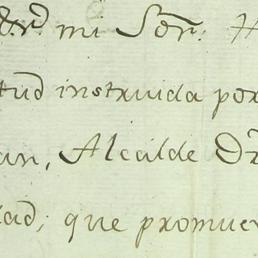 mi Sor: 
tud instruida por
an, Alcalde Dr
dad, que promue